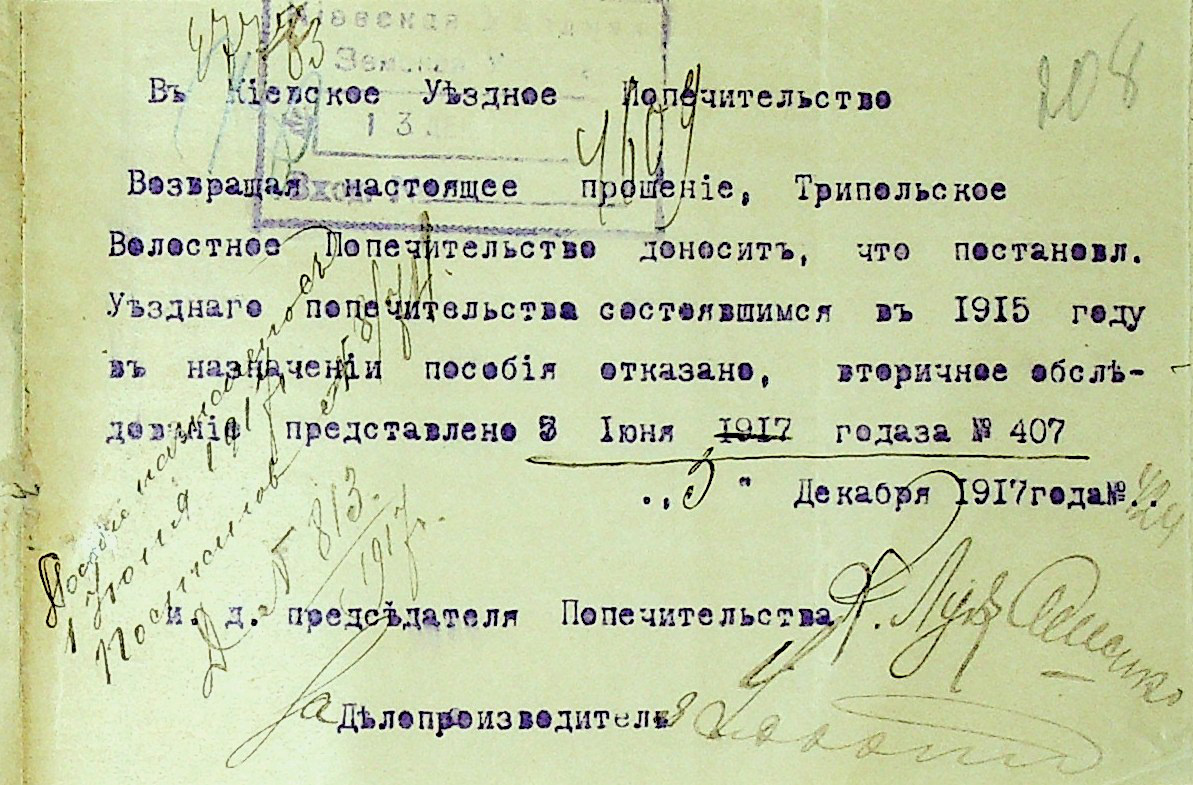 208
Кіевская
Земская
13
4609
Въ Кіевское Уѣздное Попечительство
Возвращая настоящее прошеніе, Трипольское
Волостное Попечительство доноситъ, что постановл.
Уѣзднаго попечительства состоявшимся въ 1915 году
въ назначеніи пособія отказано, вторичное обслѣ-
дованіе представлено 3 Іюня 1917 годаза № 407
.,3 " Декабря 1917года№.. 424
и. д. предсѣдателя Попечительства
За Дѣлопроизводителя
Пособіе назначено съ
1 Іюня 1917 г.
Постановл
Д. № 813.
1917 г.